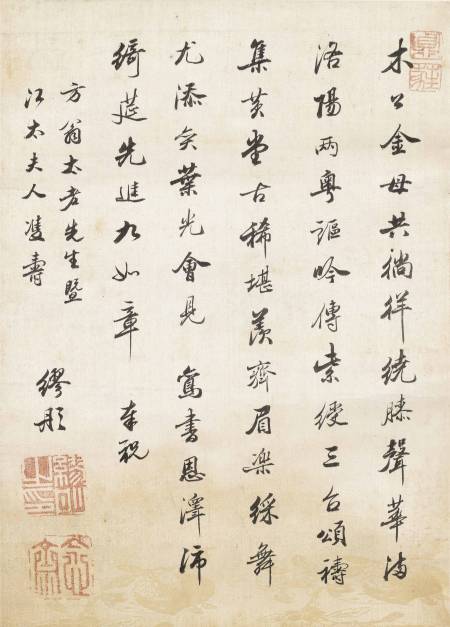 木公金母共徜徉繞膝聲華滿
洛陽兩粤謳吟傳紫綬三台頌禱
集黃堂古稀堪羨齊眉樂綵舞
尤添奕葉光會見 鸞書恩澤沛
綺筵先進九如章 奉祝
方翁太老先生暨
江太夫人雙壽
繆彤
繆彤之印
念齋